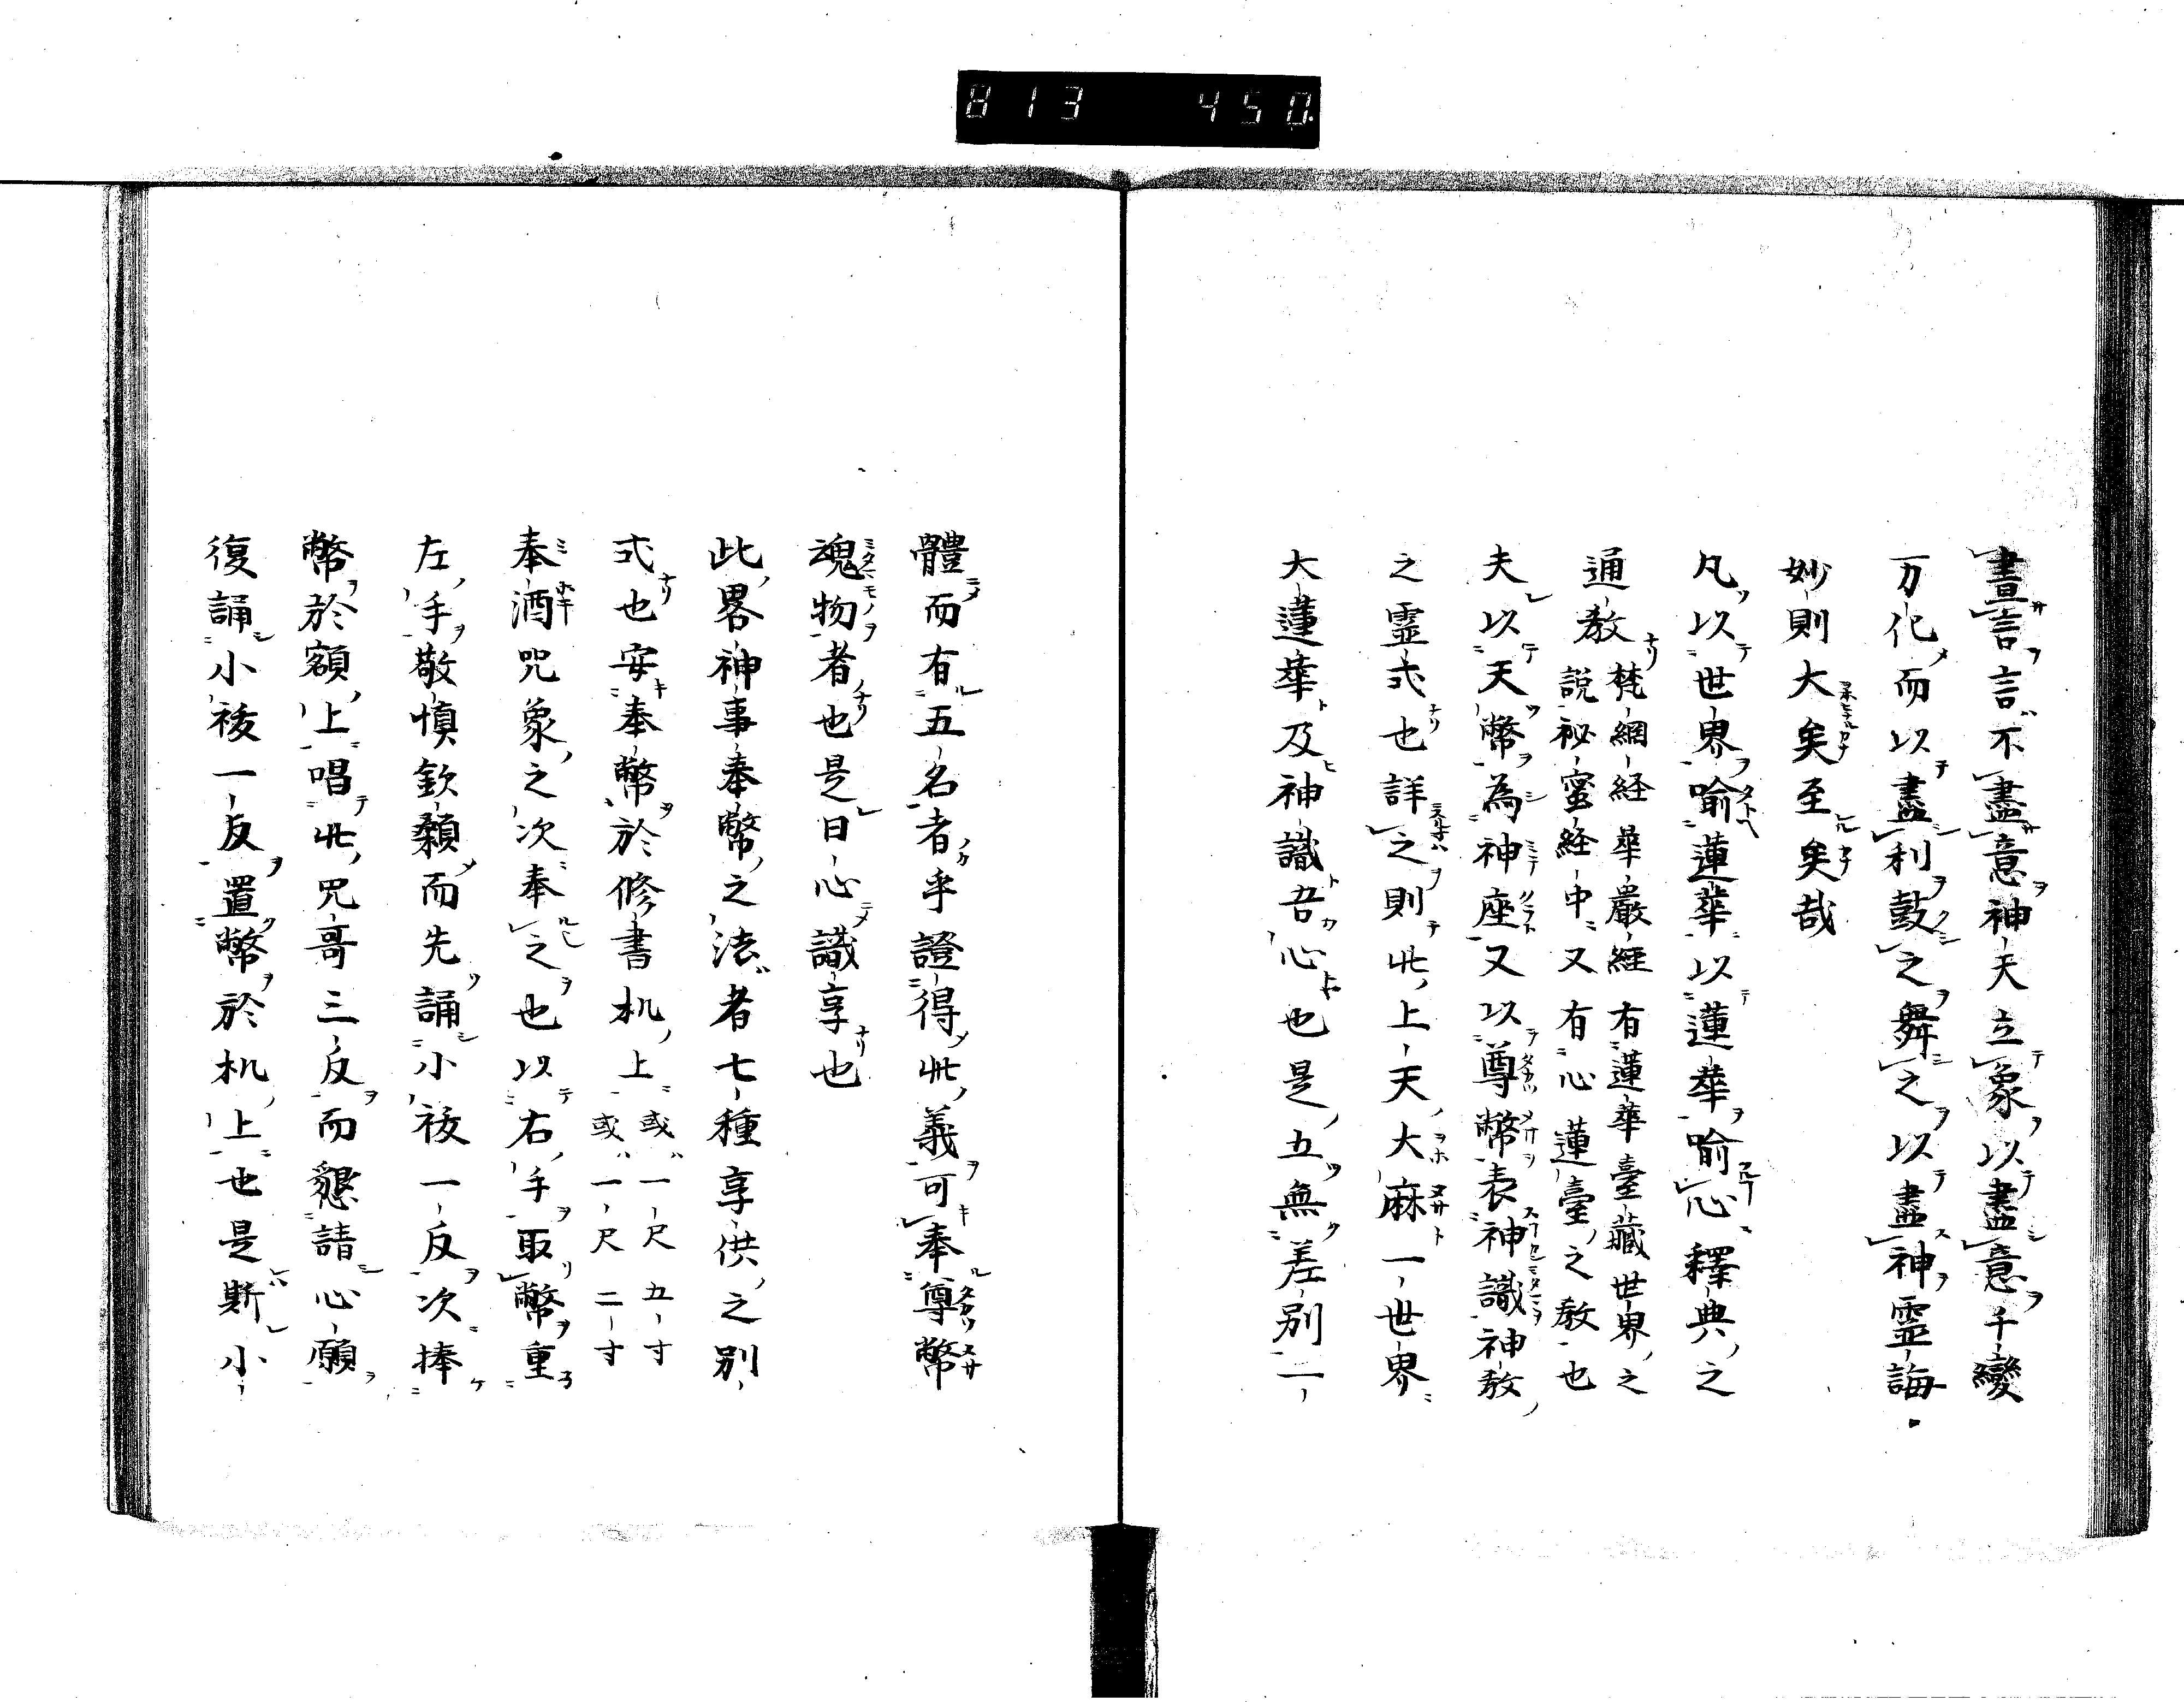 813 450
盡言言不盡意神天立象以盡意千變
万化而以盡利鼓之舞之以盡神霊誨
妙則大矣至矣哉
凡以世界喩蓮華以蓮華喩心釋典之
通教梵網経華嚴経有蓮華臺藏世界之
説祕蜜経中又有心蓮臺之教也
夫以天幣為神座又以尊幣表神識神教
之霊式也詳之則此上天大麻一世界
大蓮華及神識吾心也是五無差別一
體而有五名者乎證得此義可奉尊幣
魂物者也是日心識享也
此畧神事奉幣之法者七種享供之別
式也安奉幣於修書机上或一尺五寸
或一尺二寸
奉酒咒象之次奉之也以右手取幣重
左手敬慎欽頼而先誦小祓一反次捧
幣於額上唱此咒哥三反而懇請心願
復誦小祓一反置幣於机上也是斯小